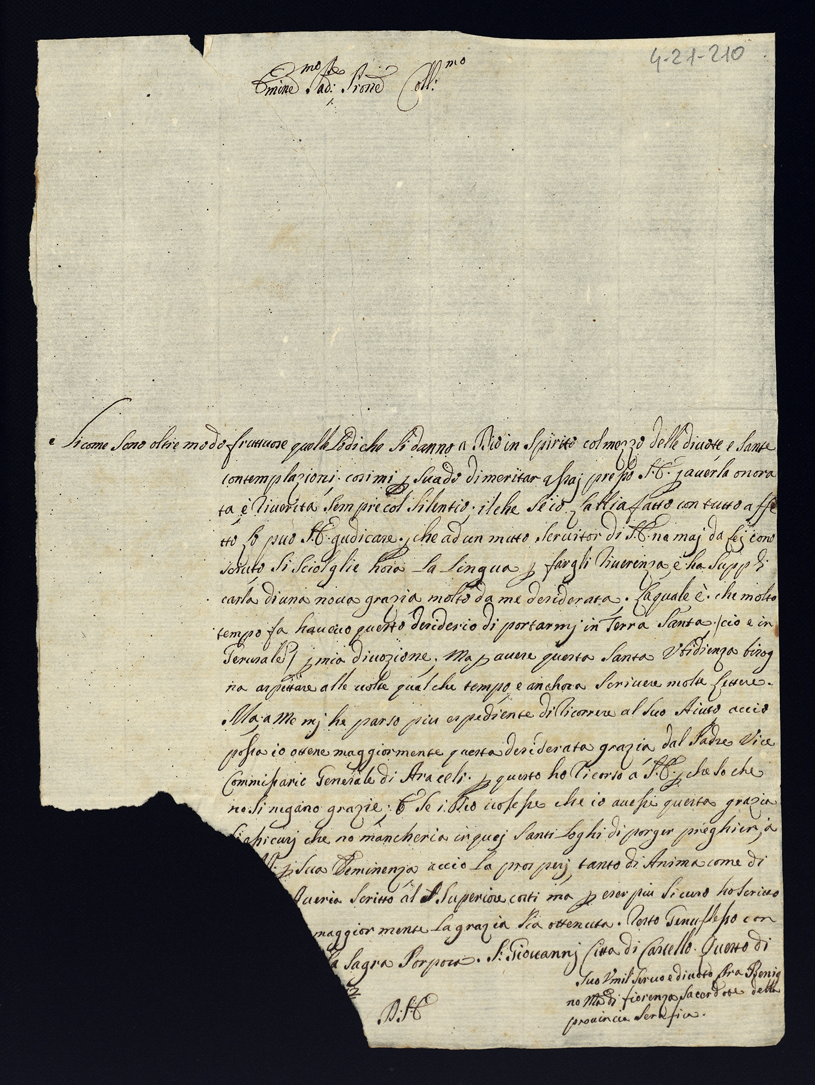 4-21-210
Emine^mo Pad: Prone Coll:^mo
Sicome sono oltre modo fruttuose quelle lodi che si danno a Dio in Spirito col mezzo delle divote e sante
contemplazioni: cosi mi p suado di meritar assaj presso S.E. p averla onora
ta è riverita sempre col silentio: il che se io l'abbia fatto con tutto affe
tto lo può S.E. gudicare, che ad un muto servitor di S.E. na maj da lej cono
sciuto si scioglie hora la lingua p fargli riverenza è ha suppli
carla di una nova grazia molto da me desiderata. la quale è. che molto
tempo fa havevo questo desiderio di portarmj in Terra Santa cio e in
Jerusale p mia divozione. Ma p avere questa Santa Vbidienza bisog
na aspettare alle volte qual che tempo e anchora scrivere molte lettere.
Ma à me mj he parso piu espediente di ricorrere al suo aiuto accio
possa io ottene maggiormente questa desiderata grazia dal Padre Vice
Commissario Generale di Araceli. p questo ho ricorso à S.E. p che so che
no si negano grazie; E se iddio volesse che io avessi questa grazia
si assicurj che no mancheria in quej Santi loghi di porger preghiere à
p sua Eeminenza accio la prosperj tanto di Anima come di
averia scritto al P. Superiore costi ma p eser piu sicuro ho scritto
maggior mente la grazia sia ottenuta. resto Genuflesso con
la sagra Porpora. S. Giovannj Citta di Castello. Questo di
D.S.E.
Suo Vmil servo e divoto fra Benig
no Ma di fiorenza sacerdote della
provincia Serafica.